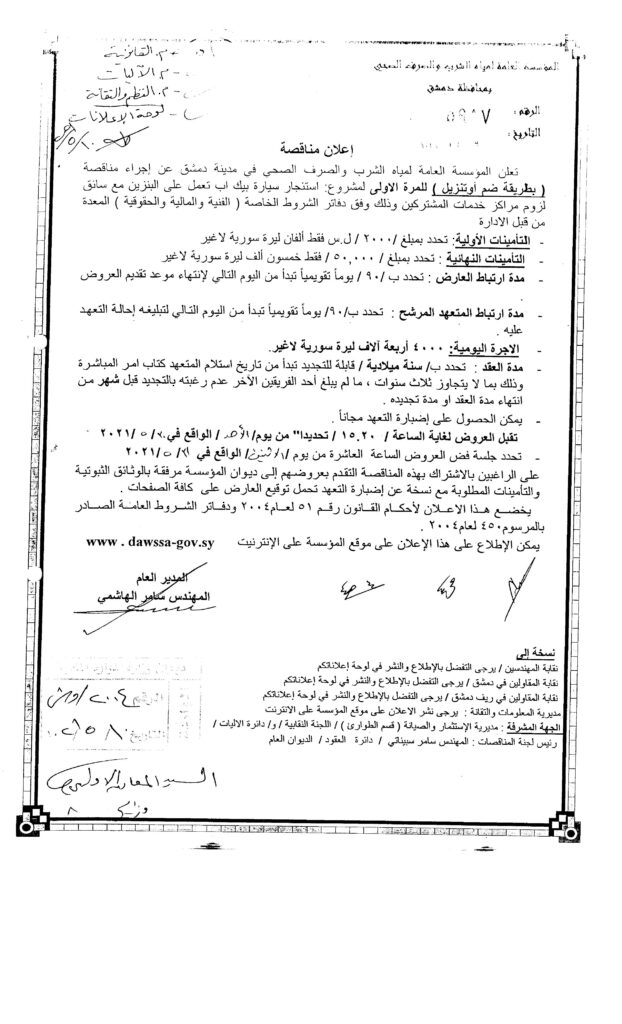 م. القانونية
م. الآليات
م. النظم والتقانة
لوحة الإعلانات
المؤسسة العامة لمياه الشرب والصرف الصحي
بمحافظة دمشق
الرقم:
التاريخ:
إعلان مناقصة
تعلن المؤسسة العامة لمياه الشرب والصرف الصحي في مدينة دمشق عن إجراء مناقصة
( بطريقة ضم أوتنزيل ) للمرة الاولى لمشروع: استنجار سيارة بيك اب تعمل على البنزين مع سائق
لزوم مراكز خدمات المشتركين وذلك وفق دفاتر الشروط الخاصة ( الفنية والمالية والحقوقية ) المعدة
من قبل الادارة
- التأمينات الأولية: تحدد بمبلغ /٢٠٠٠/ ل.س فقط ألفان ليرة سورية لاغير
- التأمينات النهائية : تحدد بمبلغ /٥٠,٠٠٠/ فقط خمسون ألف ليرة سورية لاغير
- مدة ارتباط العارض : تحدد ب/٩٠/ يوماً تقويمياً تبدأ من اليوم التالي لإنتهاء موعد تقديم العروض
.
- مدة ارتباط المتعهد المرشح : تحدد ب/٩٠/ يوماً تقويمياً تبدأ من اليوم التالي لتبليغه إحالة التعهد
عليه .
- الاجرة اليومية: ٤٠٠٠ أربعة آلاف ليرة سورية لاغير.
- مدة العقد : تحدد ب/ سنة ميلادية / قابلة للتجديد تبدأ من تاريخ استلام المتعهد كتاب امر المباشرة
وذلك بما لا يتجاوز ثلاث سنوات ، ما لم يبلغ أحد الفريقين الآخر عدم رغبته بالتجديد قبل شهر من
انتهاء مدة العقد او مدة تجديده .
- يمكن الحصول على إضبارة التعهد مجاناً .
- تقبل العروض لغاية الساعة / ١٥.٢٠ / تحديدا" من يوم/ الأحد/ الواقع في / ٥ / ٢٠٢١
- تحدد جلسة فض العروض الساعة العاشرة من يوم/ الاثنين/ الواقع في / ٥ / ٢٠٢١
على الراغبين بالاشتراك بهذه المناقصة التقدم بعروضهم إلى ديوان المؤسسة مرفقة بالوثائق الثبوتية
والتأمينات المطلوبة مع نسخة عن إضبارة التعهد تحمل توقيع العارض على كافة الصفحات .
يخضع هذا الاعلان لأحكام القانون رقم ٥١ لعام٢٠٠٤ ودفاتر الشروط العامة الصادر
بالمرسوم٤٥٠ لعام٢٠٠٤ .
يمكن الإطلاع على هذا الإعلان على موقع المؤسسة على الإنترنيت www . dawssa-gov.sy
المدير العام
المهندس سامر الهاشمي
نسخة إلى
نقابة المهندسين / يرجى التفضل بالإطلاع والنشر في لوحة إعلاناتكم
نقابة المقاولين في دمشق / يرجى التفضل بالإطلاع والنشر في لوحة إعلاناتكم
نقابة المقاولين في ريف دمشق / يرجى التفضل بالإطلاع والنشر في لوحة إعلاناتكم
مديرية المعلومات والتقانة : يرجى نشر الاعلان على موقع المؤسسة على الانترنت
الجهة المشرفة : مديرية الإستثمار والصيانة ( قسم الطوارئ ) / اللجنة النقابية / و/ دائرة الاليات /
رئيس لجنة المناقصات : المهندس سامر سبيناتي / دائرة العقود / الديوان العام
الرقم
التاريخ